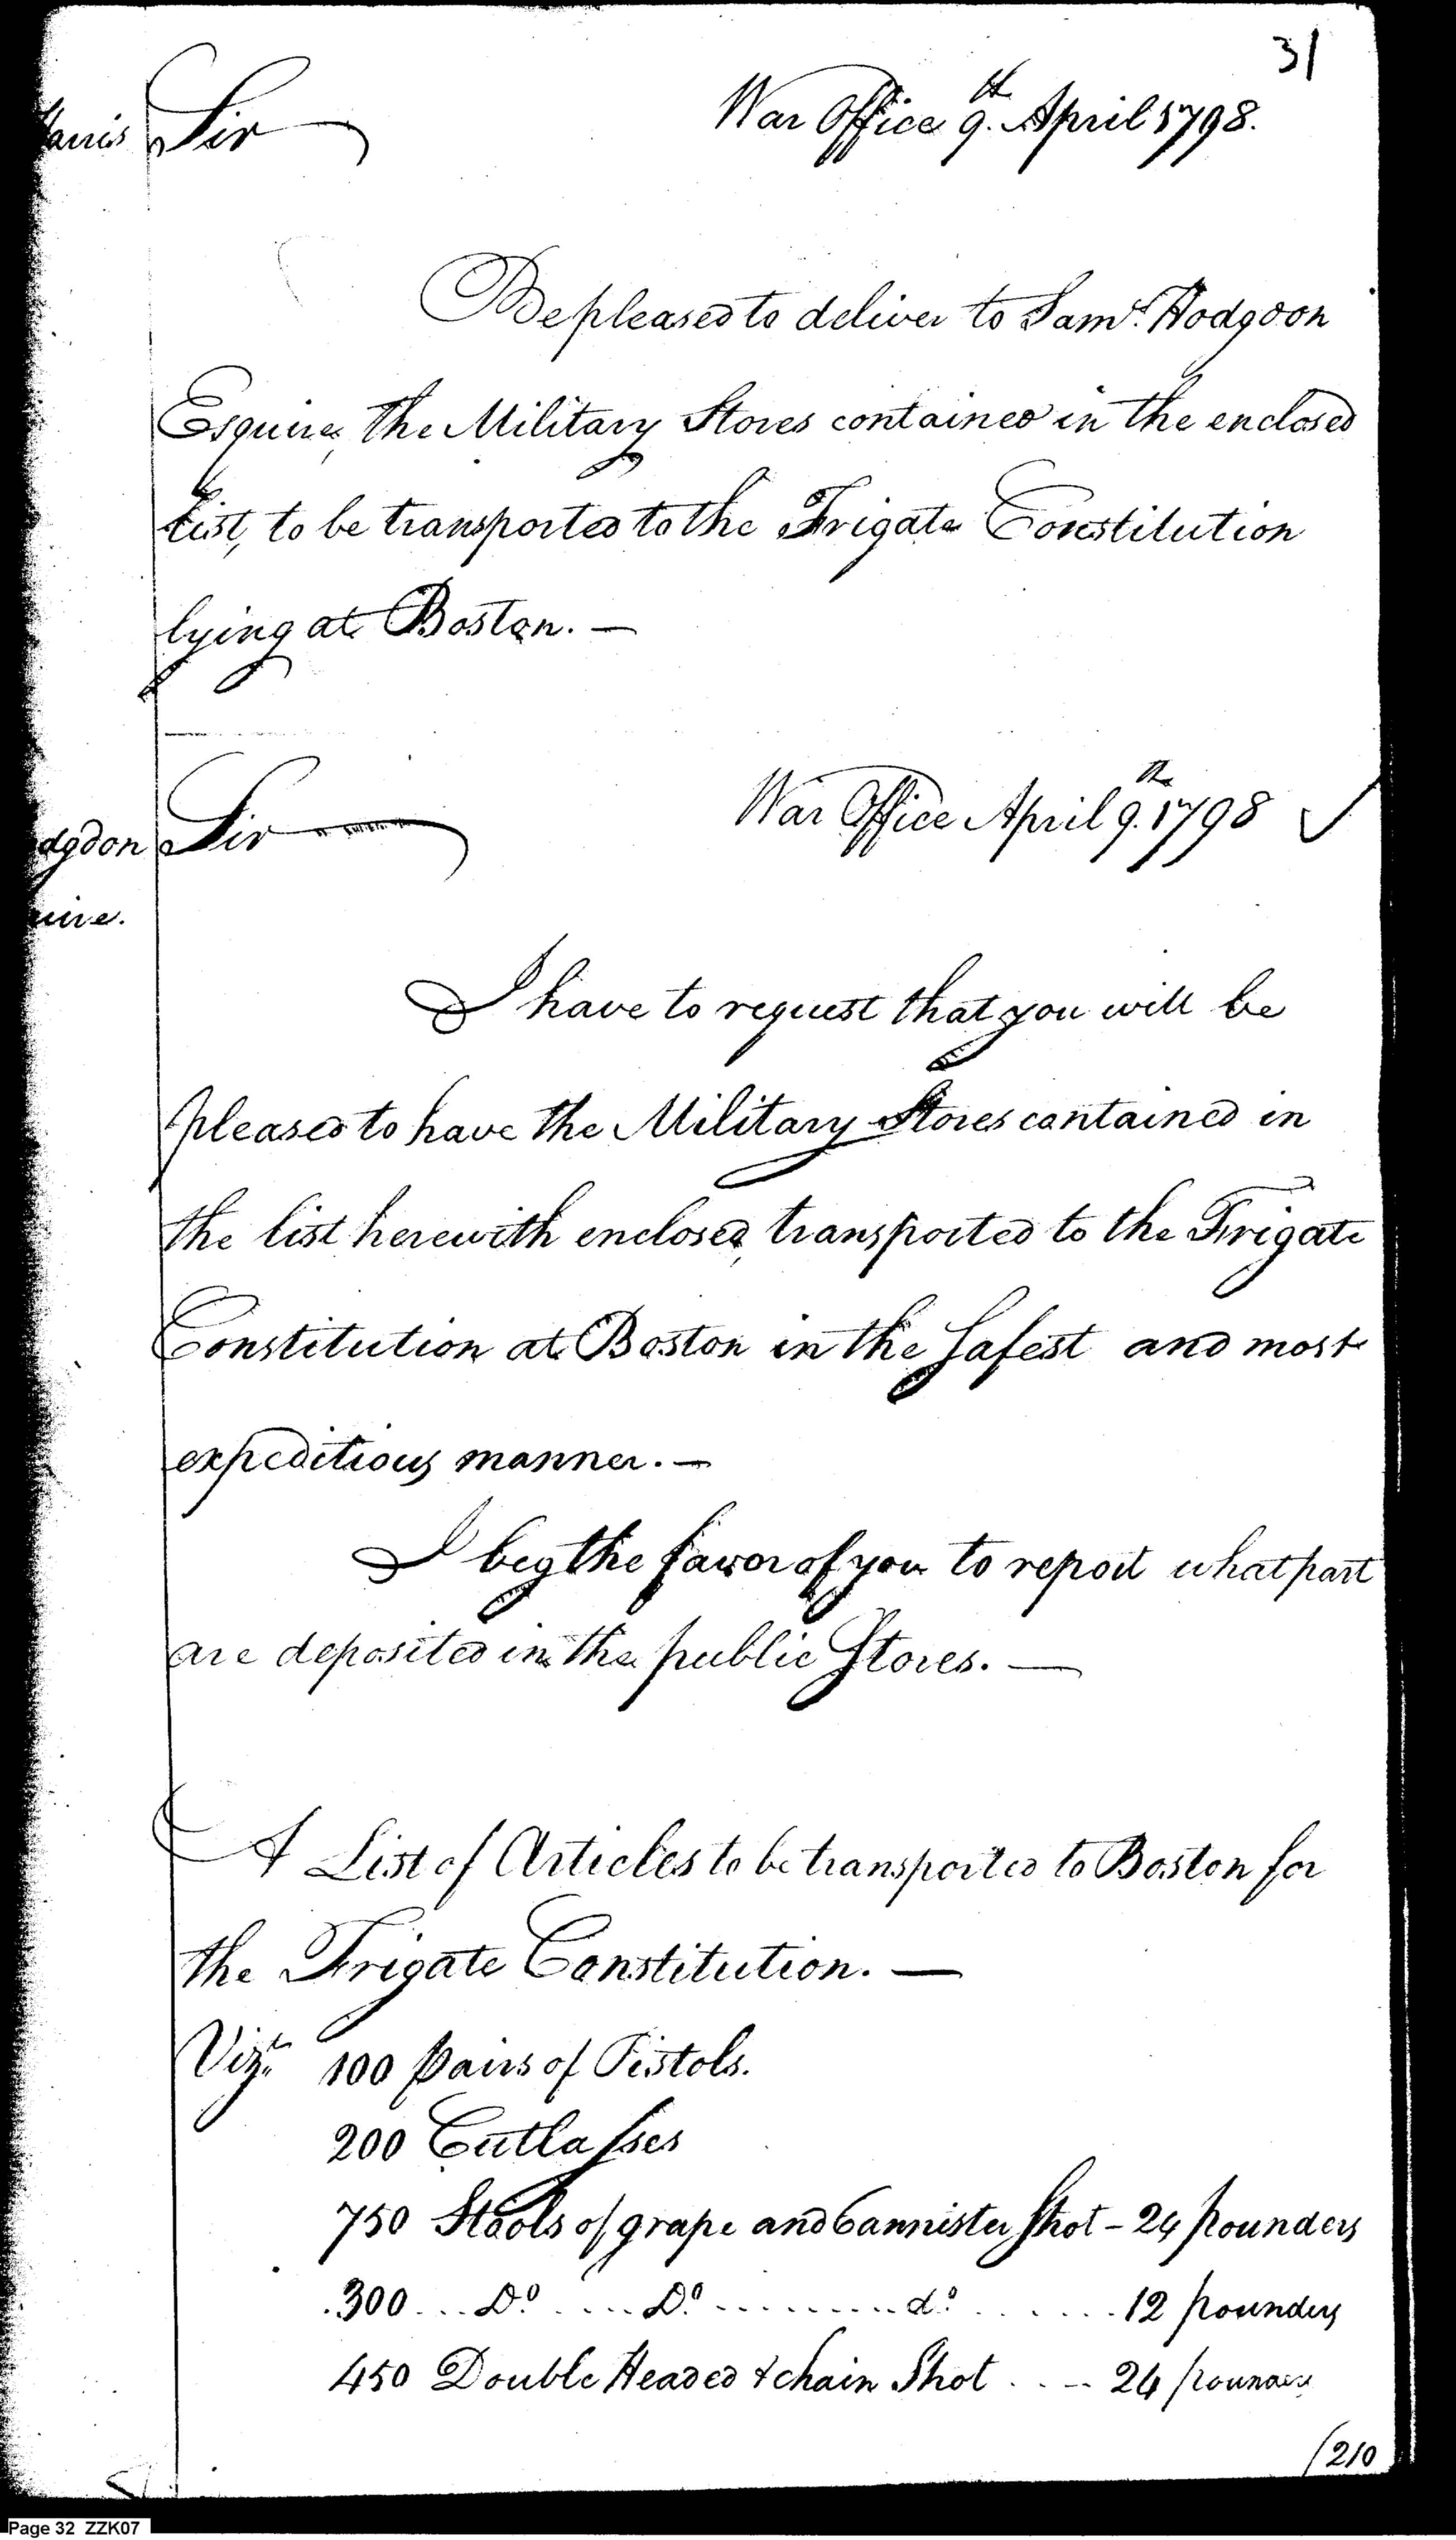 31
Harris Sir War Office 9.th April 1798.
Be pleased to deliver to Saml. Hodgdon
Esquire, the Military Stores contained in the enclosed
list, to be transported to the Frigate Constitution
lying at Boston. —
dgdon Sir War Office April 9.th 1798 ✓
uire.
I have to request that you will be
pleased to have the Military Stores contained in
the list herewith enclosed, transported to the Frigate
Constitution at Boston in the safest and most
expeditious manner. —
I beg the favor of you to report what part
are deposited in the public Stores. —
A List of Articles to be transported to Boston for
the Frigate Constitution. —
Vizt. 100 pairs of Pistols.
200 Cutlasses
750 Stools of grape and Cannister Shot - 24 pounders
300 ... Do. .... Do. ......... do. ...... 12 pounders
450 Double Headed & chain Shot .... 24 pounders
(210
Page 32 ZZK07